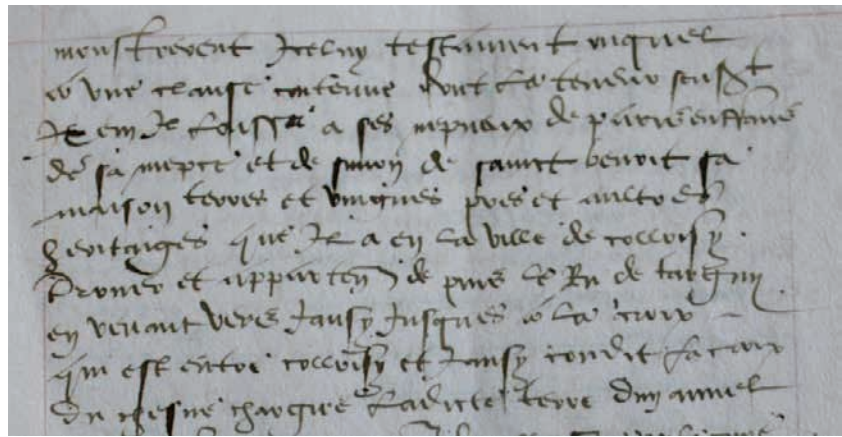 monstrerent Icelluy testament ouquel
a une clause contenue dont la teneur sensuit
Item Je laisse a ses nepueux de paris enffans
de sa niepce et de simon de sainct benoit sa
maison terres et vingnes prés et aultres
heritaiges que Il a en la ville de colloisy
droues et apparten de puis le Ru de targny
en venant vers Jansy Jusques a la croix
qui est entre colloisy et Jansy condit la croix
du chesne chargiee ladicte terre dun annuel